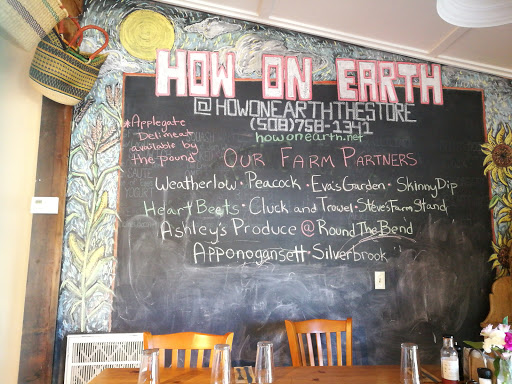 HOW ON EARTH
@HOWONEARTHTHESTORE
(508)758-1341
howonearth.net
*Applegate
Delimeat
available by
the pound
OUR FARM PARTNERS
Weatherlow · Peacock · Eva's Garden · SkinnyDip
Heart Beets · Cluck and Trowel · Steve's Farm Stand
Ashley's Produce @ Round The Bend
Apponogansett · Silverbrook